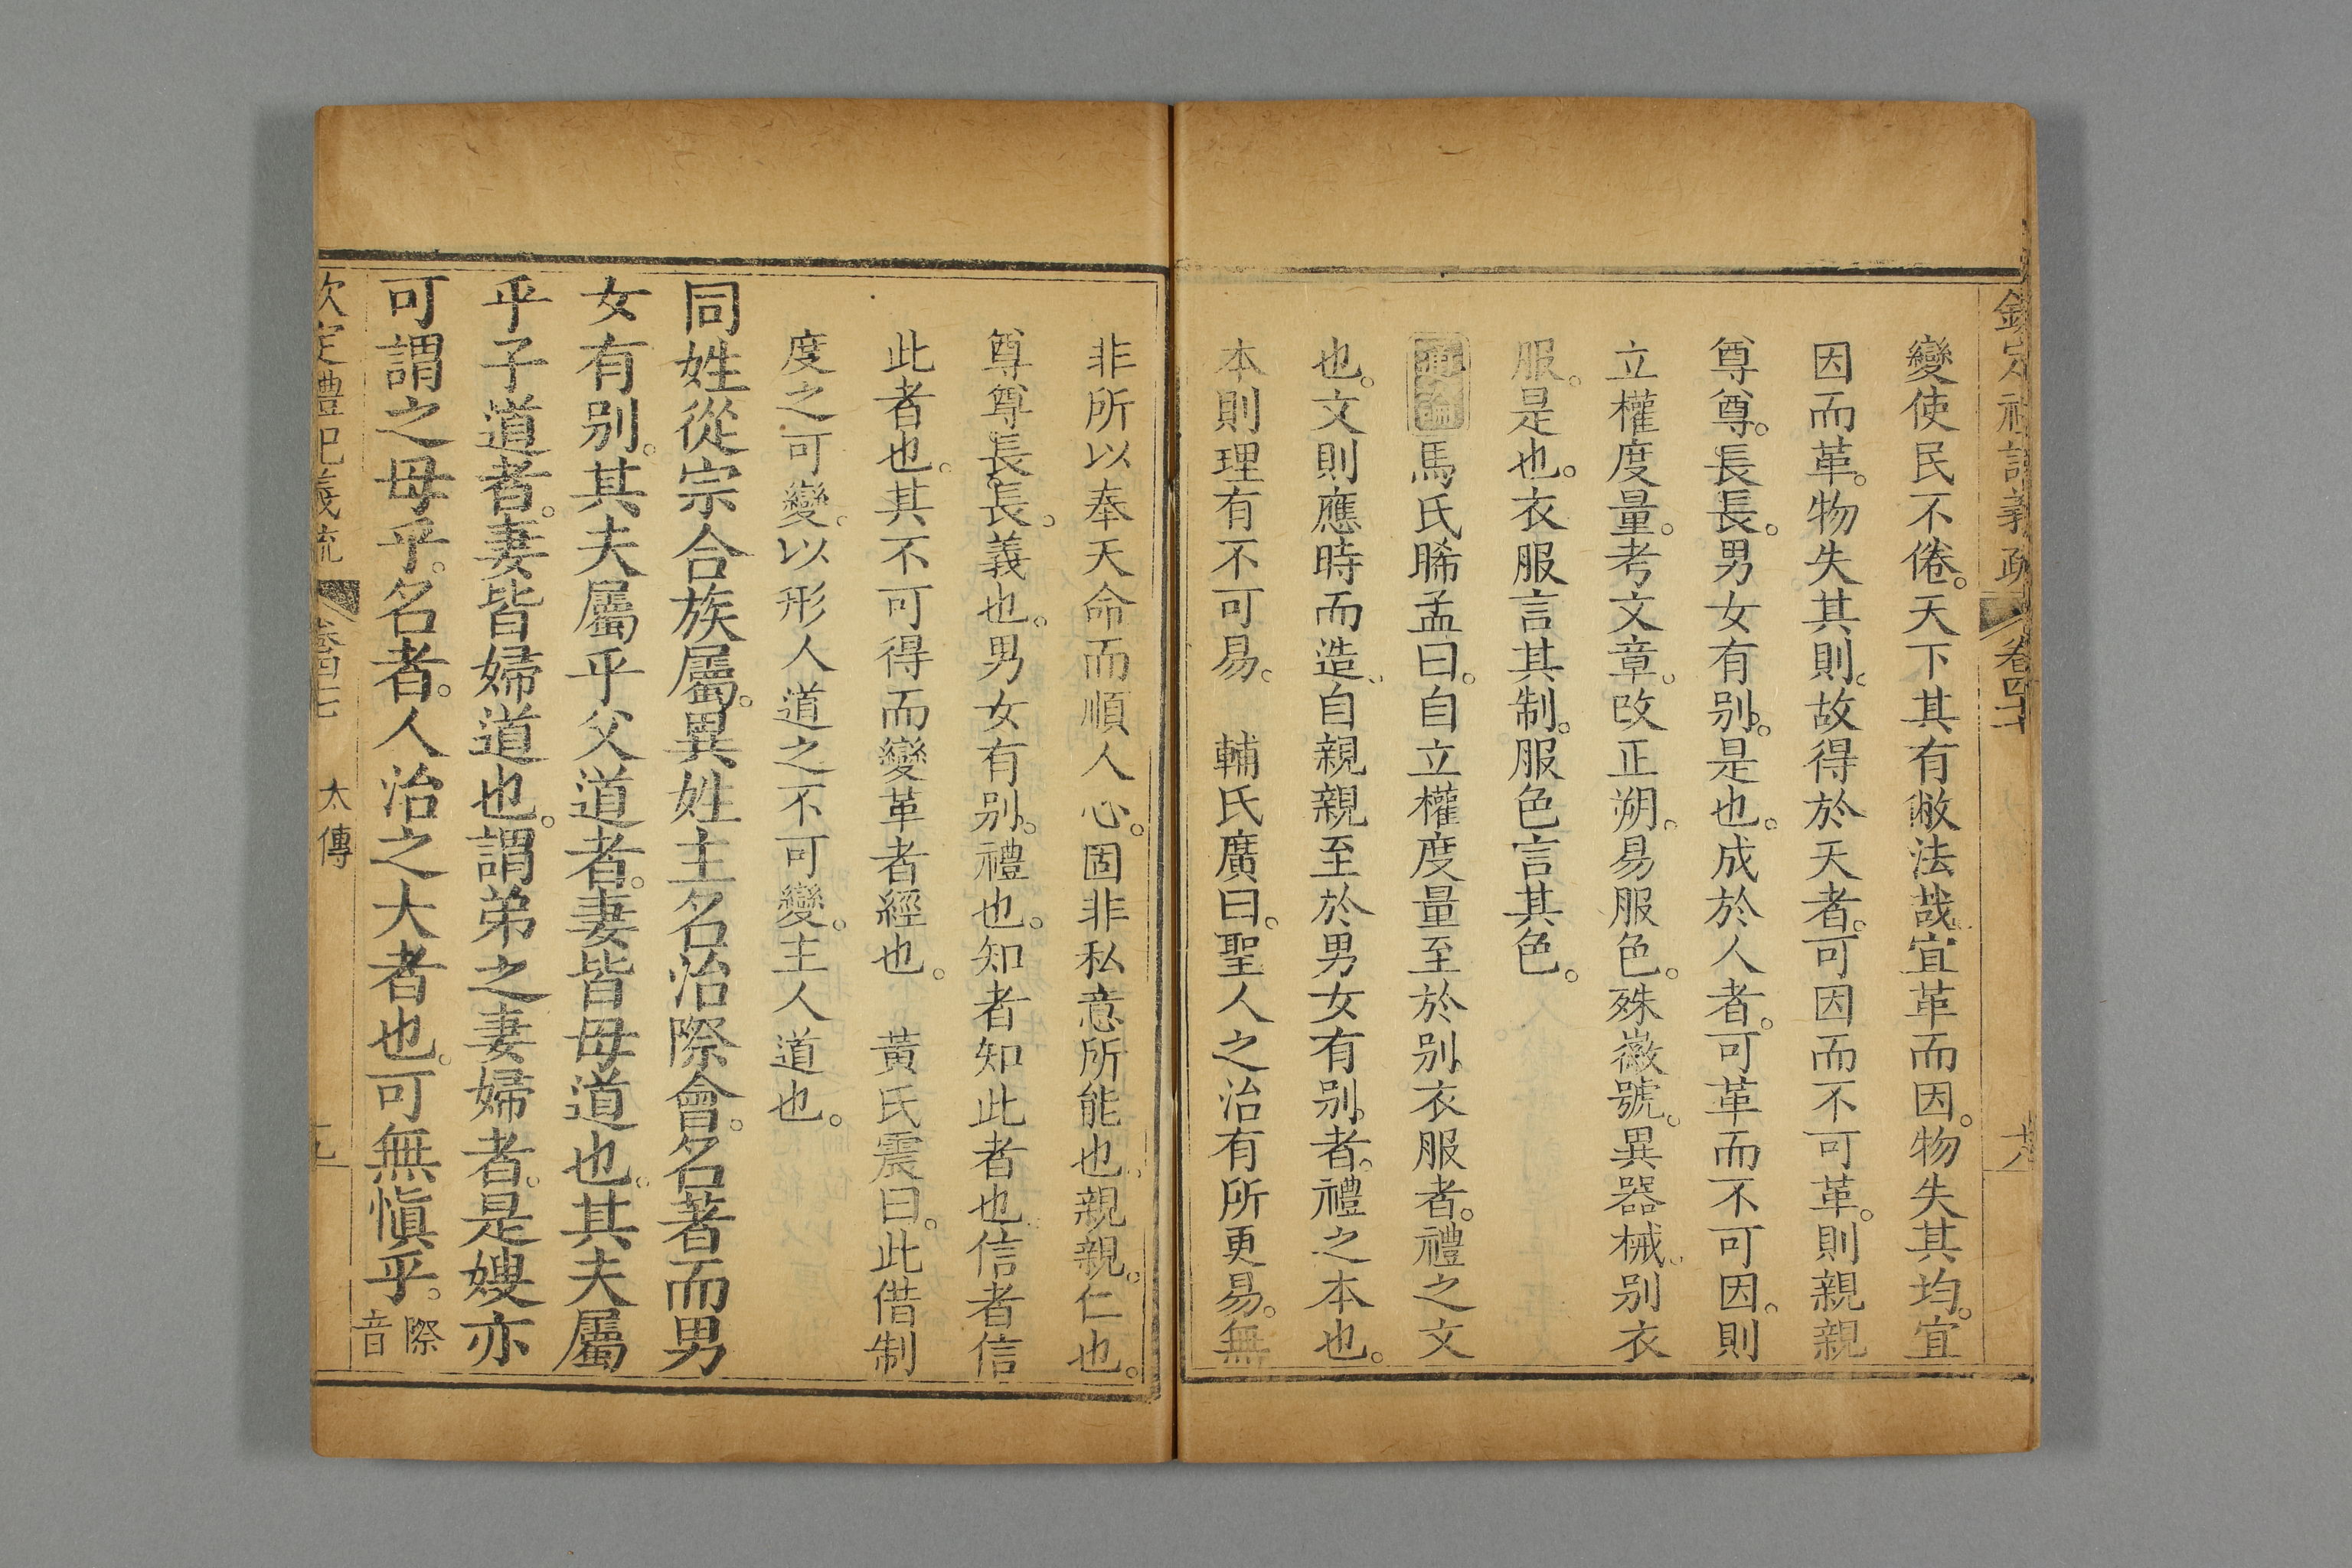 變使民不倦。天下其有敝法哉。宜革而因。物失其均。宜
因而革。物失其則。故得於天者。可因而不可革。則親親
尊尊。長長。男女有别。是也。成於人者。可革而不可因。則
立權度量。考文章。改正朔。易服色。殊徽號。異器械。别衣
服。是也。衣服言其制。服色言其色。
通論馬氏睎孟曰。自立權度量至於别衣服者。禮之文
也。文則應時而造。自親親至於男女有别者。禮之本也。
本則理有不可易。 輔氏廣曰。聖人之治有所更易。無
非所以奉天命而順人心。固非私意所能也。親親。仁也。
尊尊長長。義也。男女有别。禮也。知者知此者也。信者信
此者也。其不可得而變革者經也。 黃氏震曰。此借制
度之可變。以形人道之不可變。主人道也。
同姓從宗合族屬。異姓主名治際會。名著而男
女有别。其夫屬乎父道者。妻皆母道也。其夫屬
乎子道者。妻皆婦道也。謂弟之妻婦者。是嫂亦
可謂之母乎。名者。人治之大者也。可無愼乎。際
音
欽定禮記義疏 卷四七 大傳